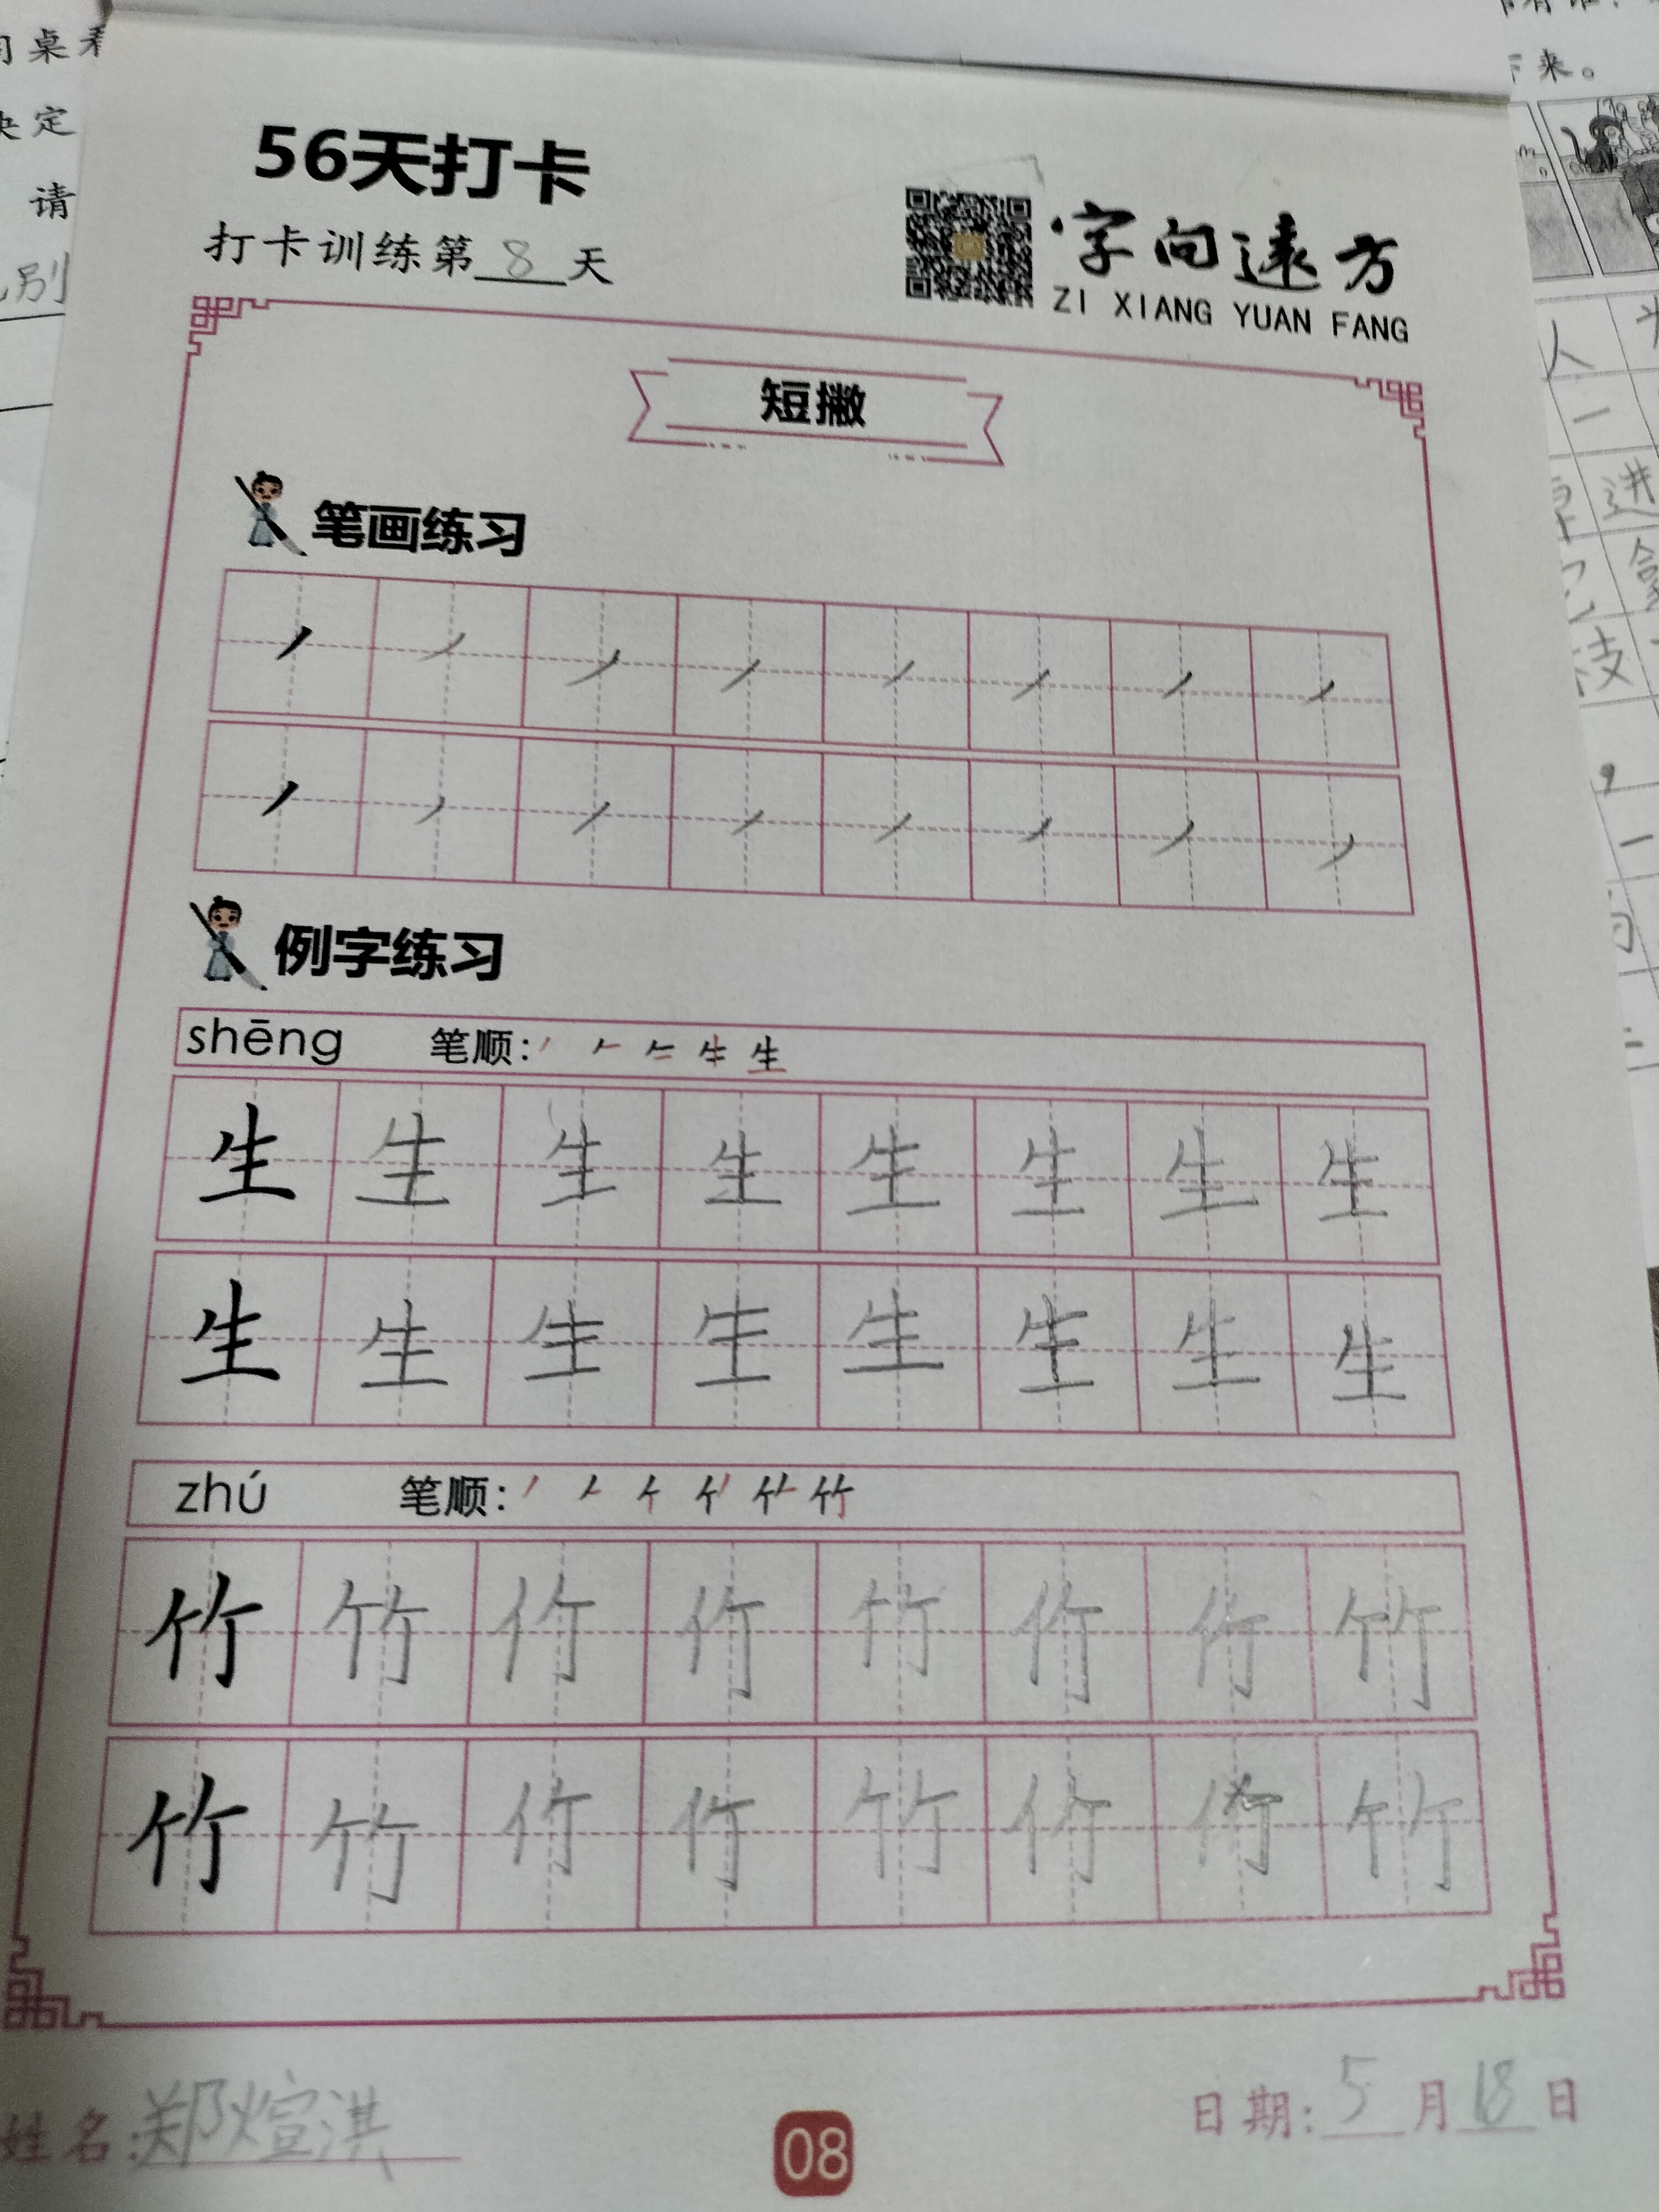 56天打卡
打卡训练第8天
字向遠方
ZI XIANG YUAN FANG
短撇
笔画练习
例字练习
shēng 笔顺:
生 生 生 生 生 生 生 生
生 生 生 生 生 生 生 生
zhú 笔顺:
竹 竹 竹 竹 竹 竹 竹 竹
竹 竹 竹 竹 竹 竹 竹 竹
姓名:郑煊淇
日期:5月18日
08
桌
决定
请
别
来。
人
一
进